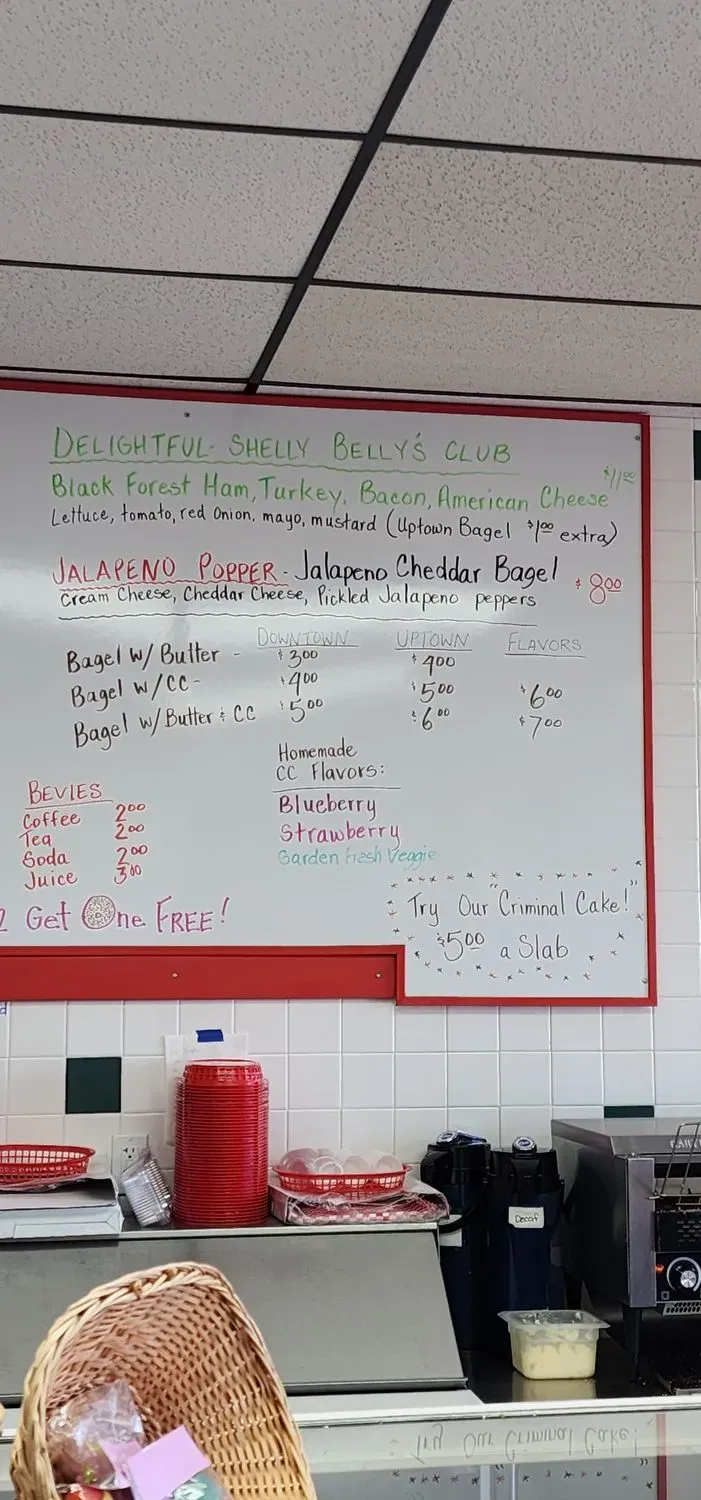 DELIGHTFUL- SHELLY BELLY'S CLUB
$11.00
Black Forest Ham, Turkey, Bacon, American Cheese
Lettuce, tomato, red Onion, mayo, mustard (Uptown Bagel $1.00 extra)
JALAPENO POPPER - Jalapeno Cheddar Bagel $8.00
Cream Cheese, Cheddar Cheese, Pickled Jalapeno peppers
DOWNTOWN UPTOWN FLAVORS
Bagel w/ Butter - $3.00 $4.00
Bagel w/CC - $4.00 $5.00 $6.00
Bagel w/Butter & CC $5.00 $6.00 $7.00
Homemade
CC Flavors:
Blueberry
Strawberry
Garden Fresh Veggie
BEVIES
Coffee 2.00
Tea 2.00
Soda 2.00
Juice 3.00
2 Get One FREE!
Try Our "Criminal Cake!"
$5.00 a Slab
Decaf